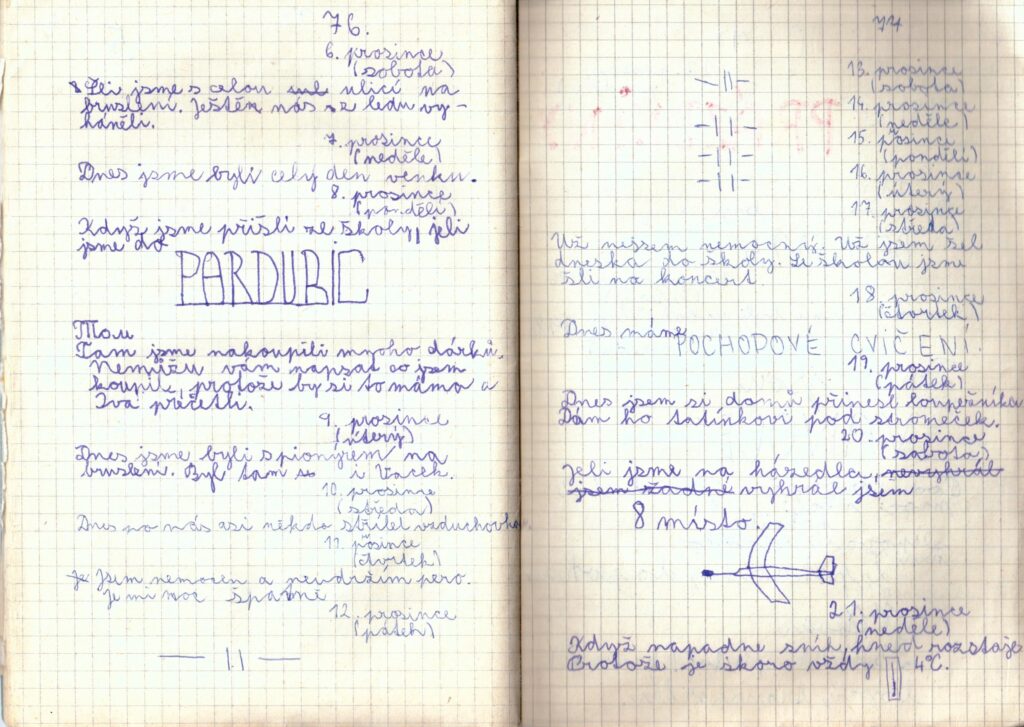 76.
6. prosince
(sobota)
Šli jsme s celou ulicí na
bruslení. Ještěže nás z ledu vy-
háněli.
7. prosince
(neděle)
Dnes jsme byli celý den venku.
8. prosince
(pondělí)
Když jsme přišli ze školy, jeli
jsme do
PARDUBIC
Tam jsme nakoupili mnoho dárků.
Nemůžu vám napsat co jsem
koupil, protože by si to máma a
Iva přečetli.
9. prosince
(úterý)
Dnes jsme byli s pionýrem na
bruslení. Byl tam i Vacek.
10. prosince
(středa)
Dnes po nás asi někdo střílel vzduchovko
11. prosince
(čtvrtek)
Jsem nemocen a neudržím pero.
Je mi moc špatně
12. prosince
(pátek)
— 11 —
74
13. prosince
(sobota)
— 11 —
14. prosince
(neděle)
— 11 —
15. prosince
(pondělí)
— 11 —
16. prosince
(úterý)
— 11 —
17. prosince
(středa)
Už nejsem nemocný. Už jsem šel
dneska do školy. Se školou jsme
šli na koncert.
18. prosince
(čtvrtek)
Dnes máme POCHOPOVÉ CVIČENÍ.
19. prosince
(pátek)
Dnes jsem si domů přinesl loupežníka
Dám ho tatínkovi pod stromeček.
20. prosince
(sobota)
Jeli jsme na házedla, nevyhrál
jsem žádné vyhrál jsem
8 místo.
21. prosince
(neděle)
Když napadne sníh, hned rozstaje
Protože je skoro vždy 4°C.